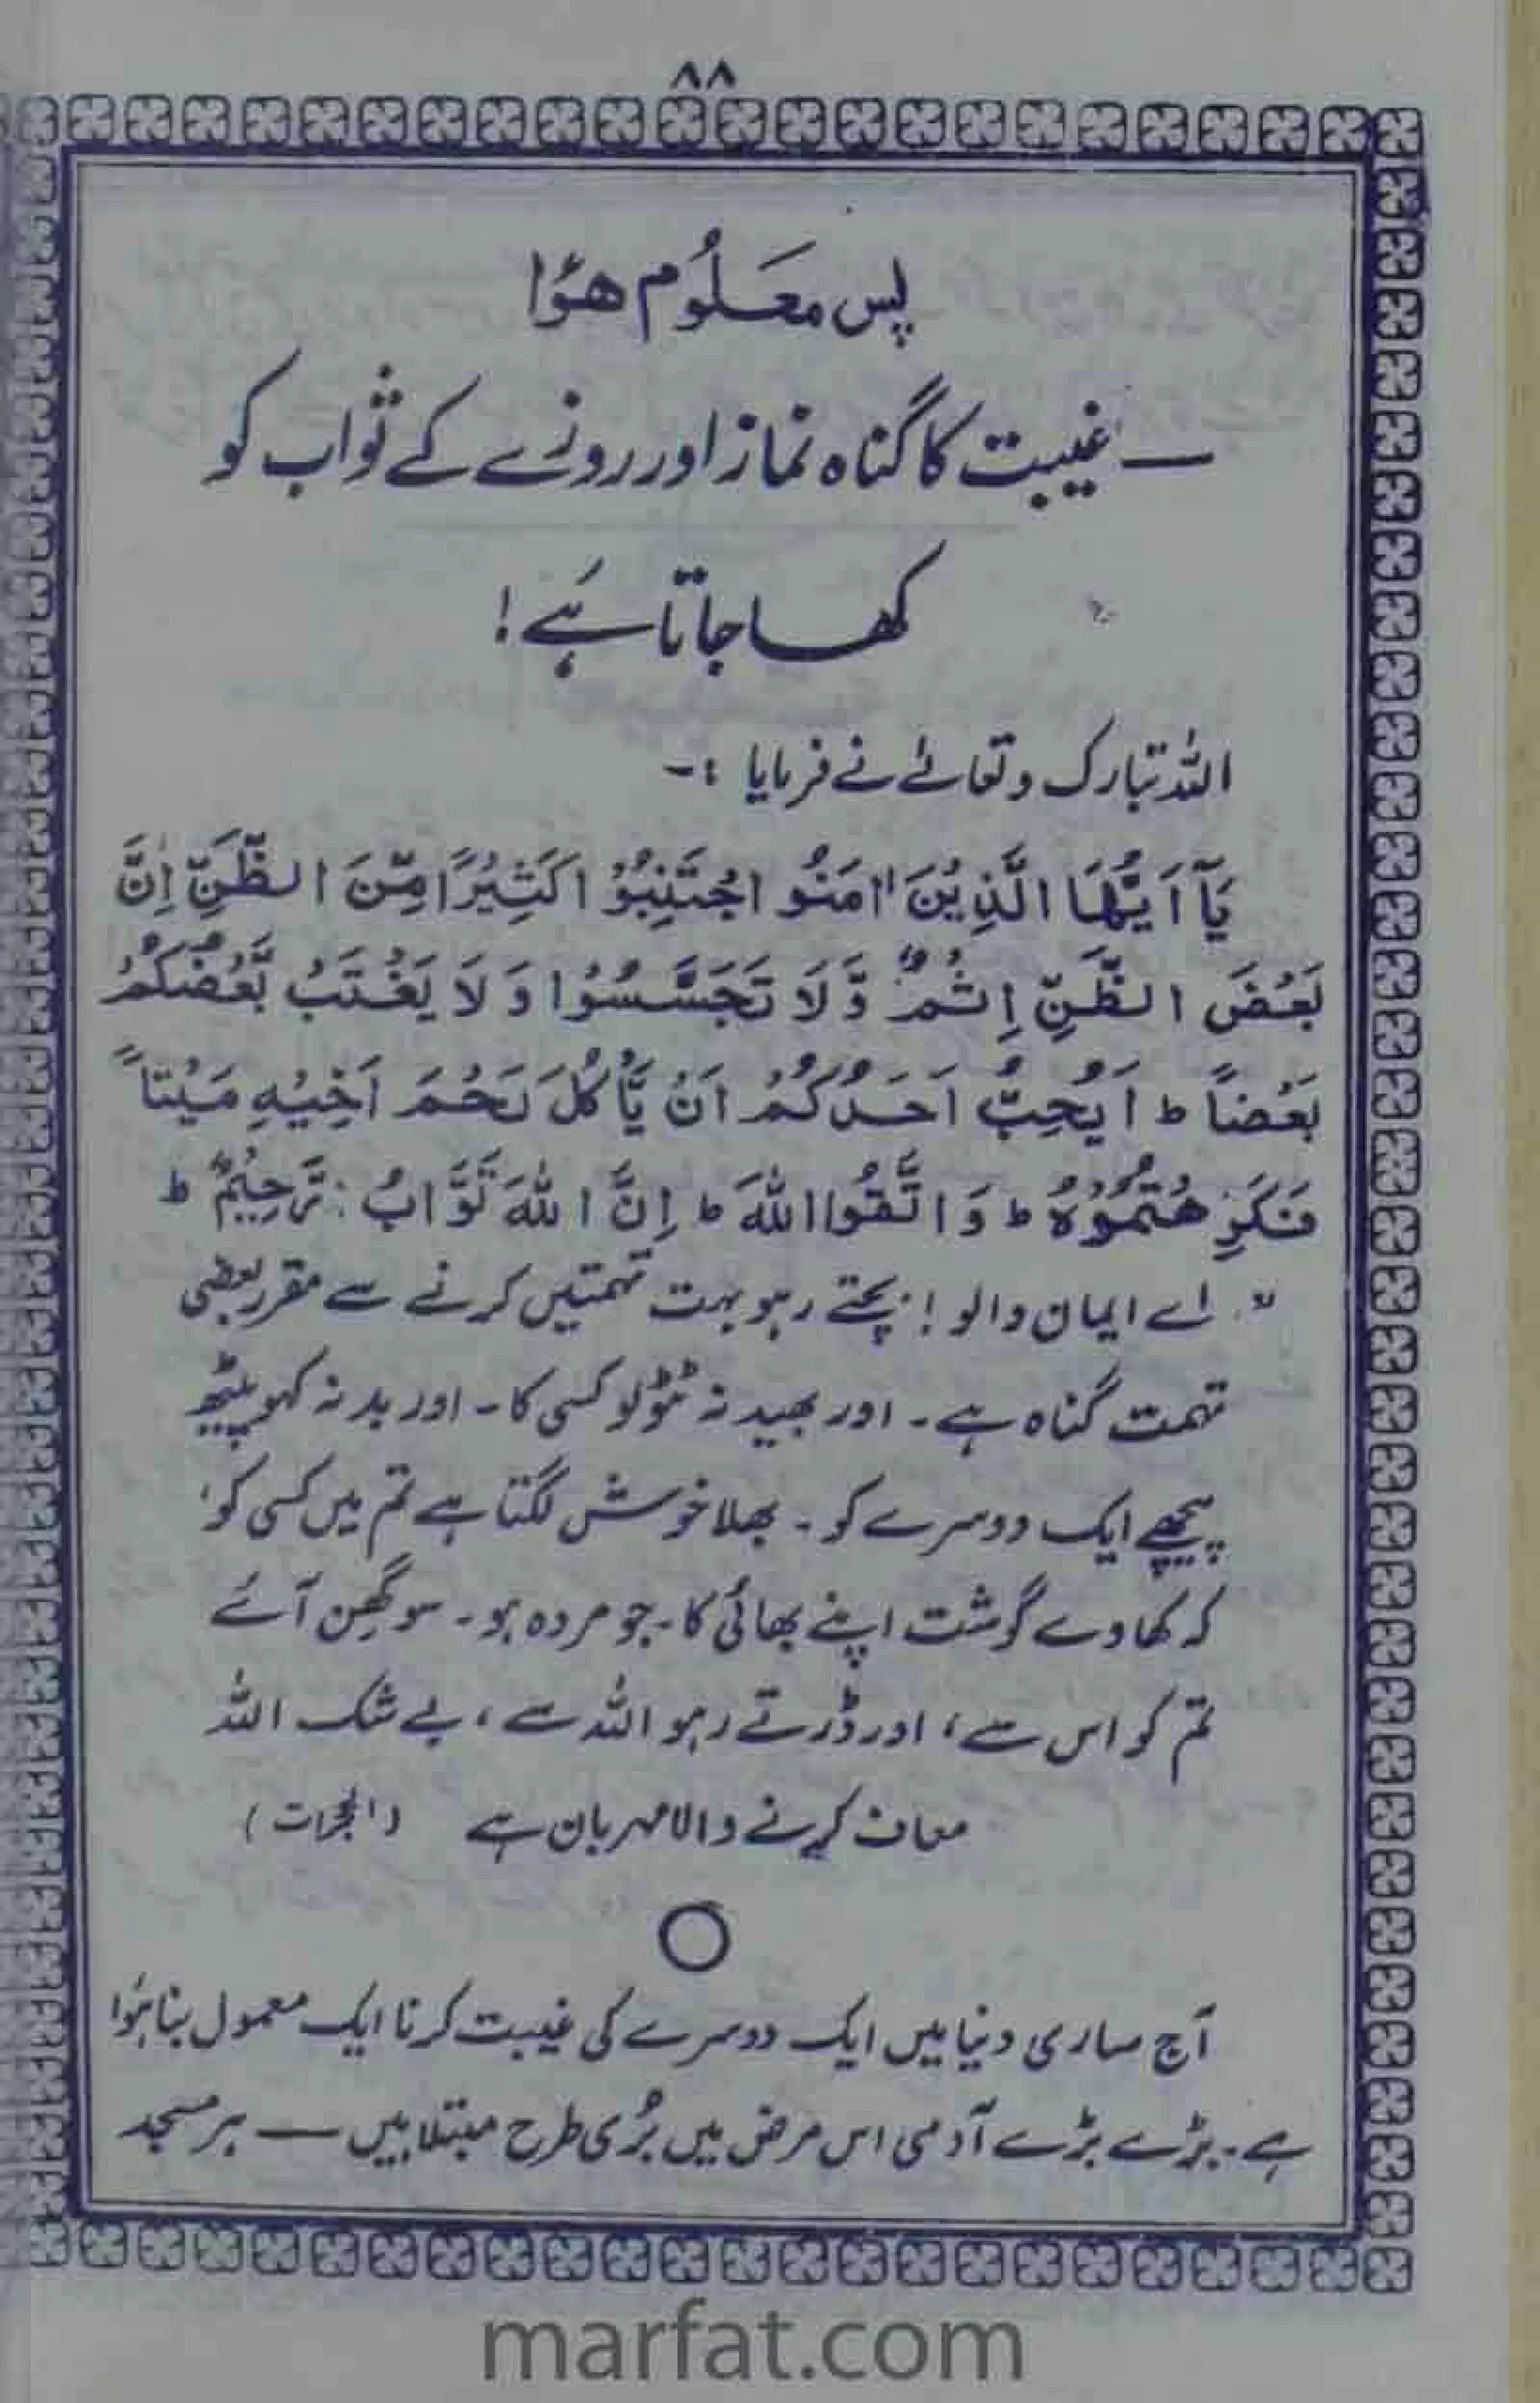 ۸۸
پس معلُوم ھؤا
— غیبت کا گناہ نماز اور روزے کے ثواب کو
کھا جاتا ہَے !
اللہ تبارک وتعالےٰ نے فرمایا :-
يَآ اَيُّهَا الَّذِيْنَ اٰمَنُوا اجْتَنِبُوْا كَثِيْرًا مِّنَ الظَّنِّ اِنَّ
بَعْضَ الظَّنِّ اِثْمٌ وَّلَا تَجَسَّسُوْا وَلَا يَغْتَبْ بَّعْضُكُمْ
بَعْضاً ط اَيُحِبُّ اَحَدُكُمْ اَنْ يَّأْكُلَ لَحْمَ اَخِيْهِ مَيْتاً
فَكَرِهْتُمُوْهُ ط وَاتَّقُوا اللهَ ط اِنَّ اللهَ تَوَّابٌ رَّحِيْمٌ ط
" اے ایمان والو ! بچتے رہو بہت تہمتیں کرنے سے مقرر بعضی
تہمت گناہ ہے ۔ اور بھید نہ ٹٹولو کسی کا ۔ اور بد نہ کہو پیٹھ
پیچھے ایک دوسرے کو ۔ بھلا خوش لگتا ہے تم میں کسی کو'
کہ کھاوے گوشت اپنے بھائی کا ۔ جو مردہ ہو ۔ سو گھِن آئے
تم کو اس سے ، اور ڈرتے رہو اللہ سے ، بے شک اللہ
معاف کرنے والا مہربان ہے (الحجرات)
آج ساری دنیا میں ایک دوسرے کی غیبت کرنا ایک معمول بنا ہؤا
ہے ۔ بڑے بڑے آدمی اس مرض میں بُری طرح مبتلا ہیں — ہر مسجد
marfat.com